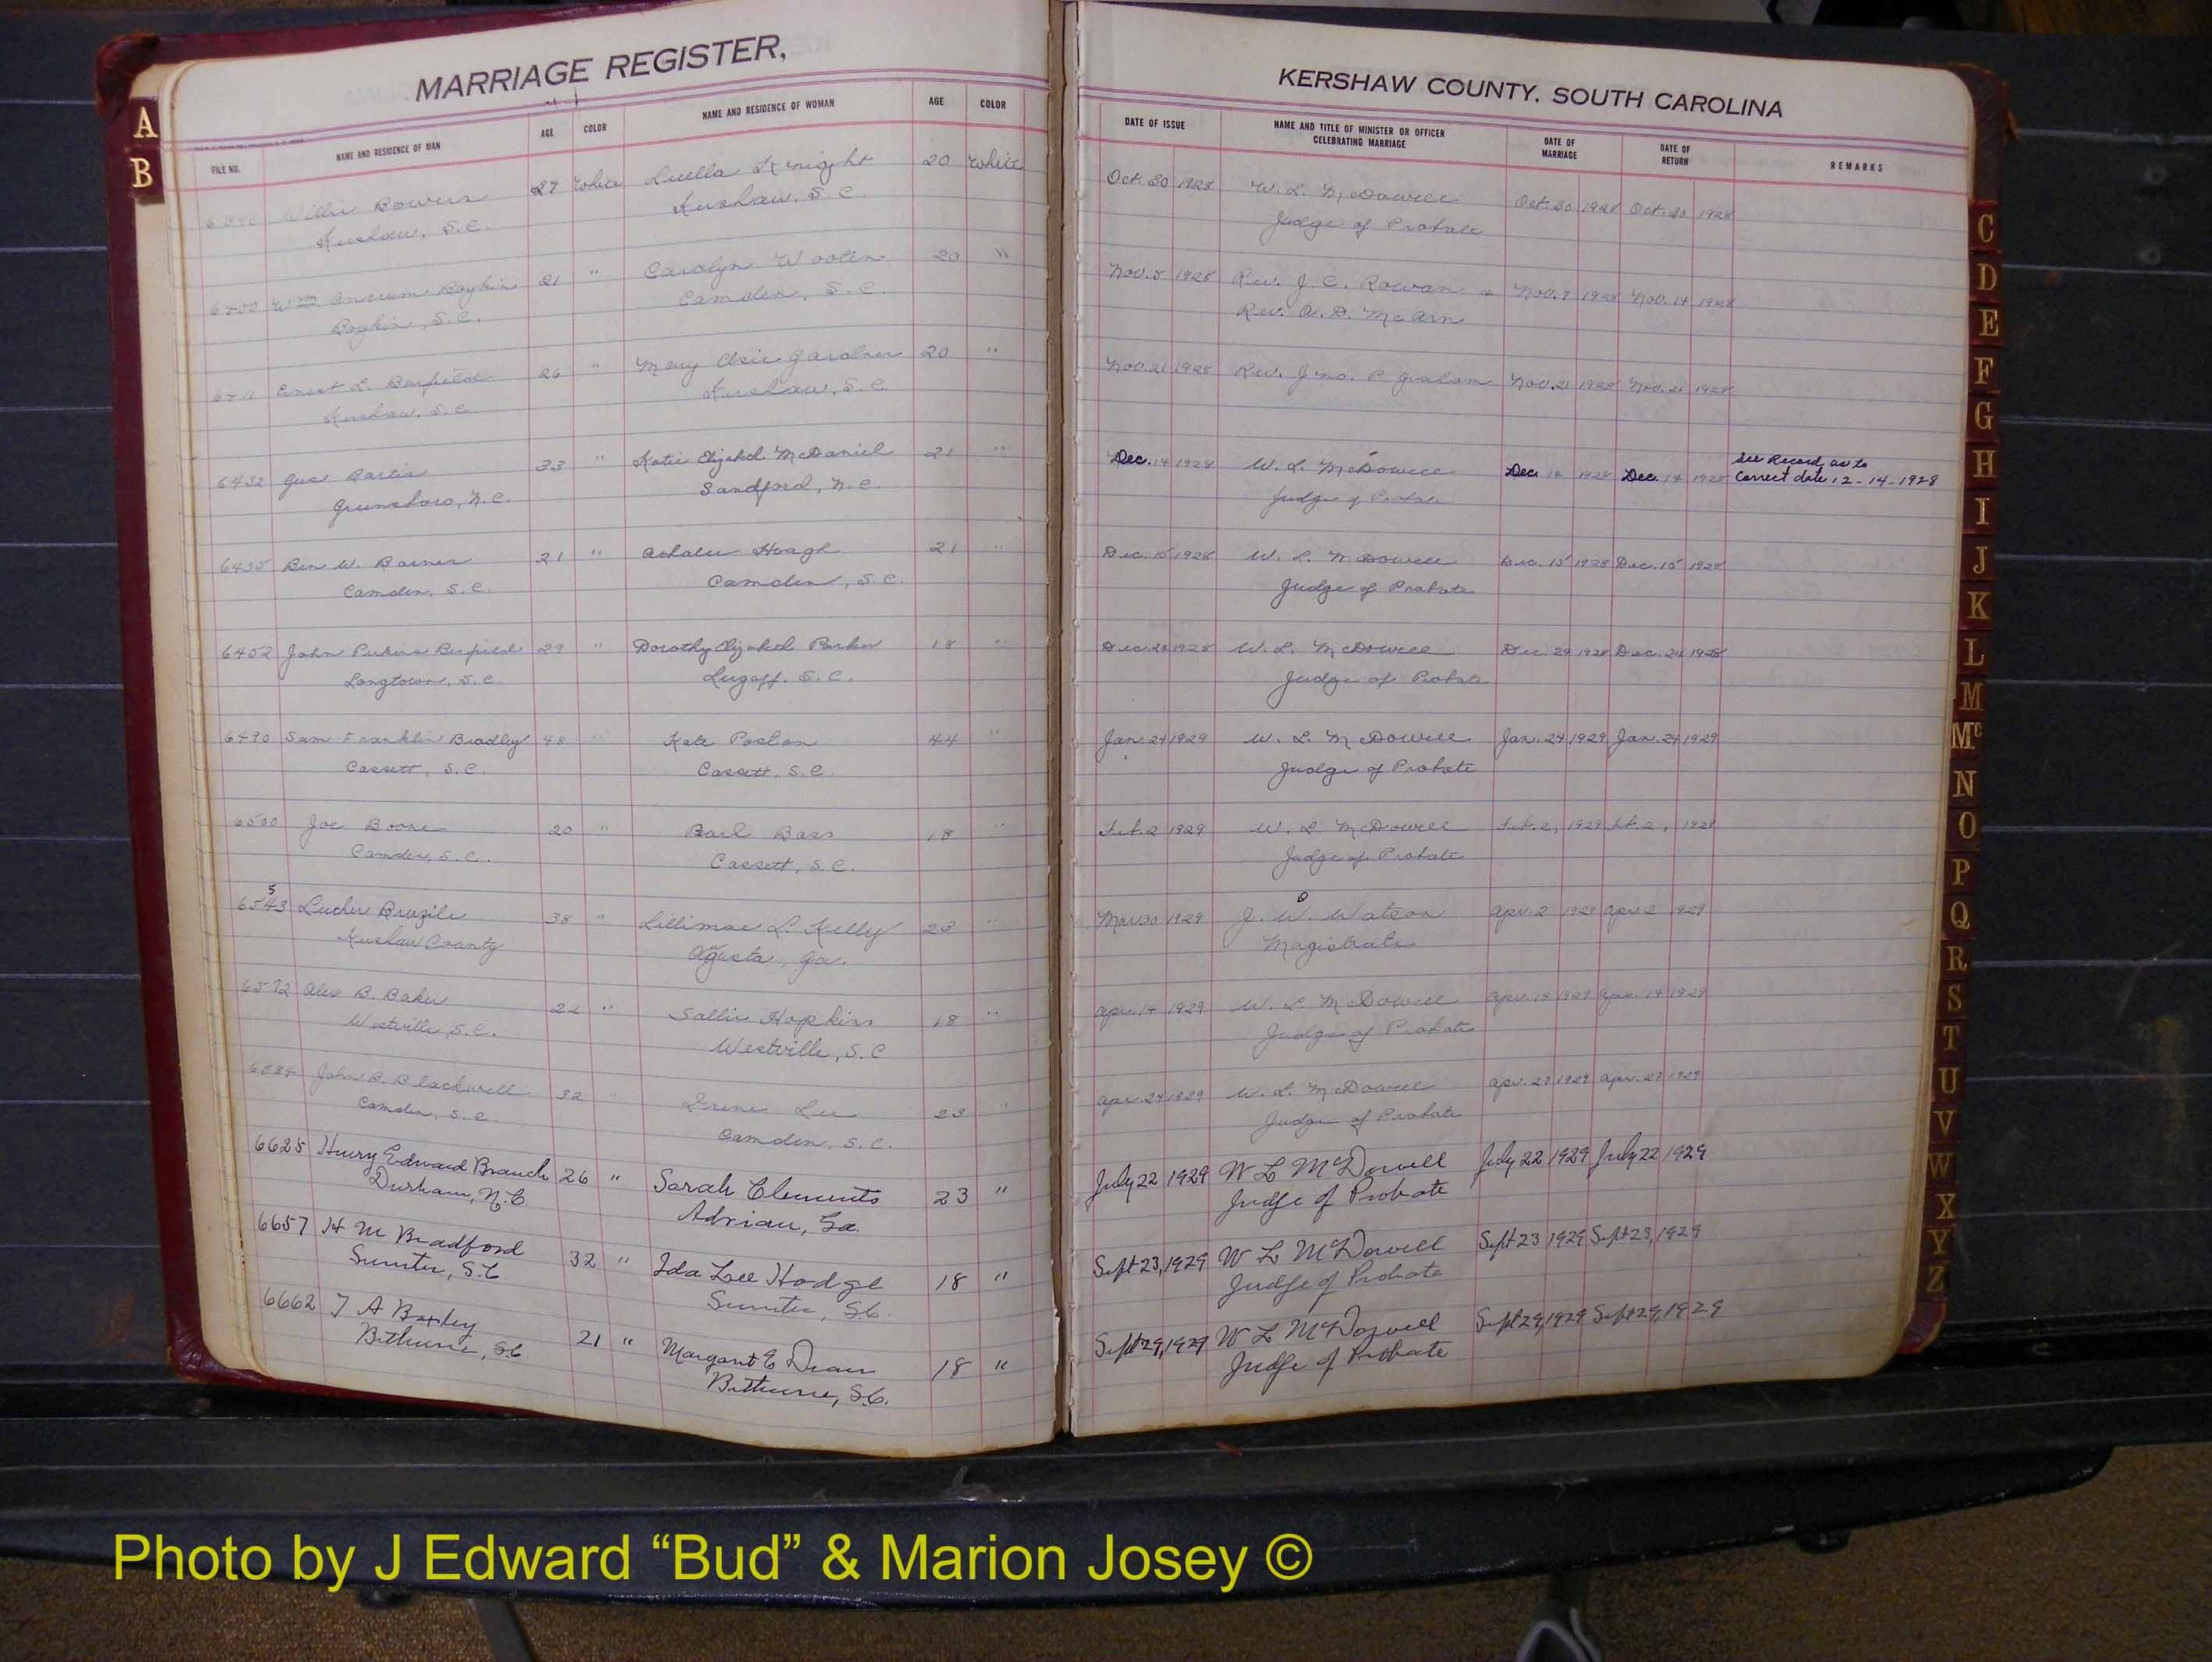 MARRIAGE REGISTER,
KERSHAW COUNTY, SOUTH CAROLINA
FILE NO. NAME AND RESIDENCE OF MAN AGE COLOR NAME AND RESIDENCE OF WOMAN AGE COLOR
DATE OF ISSUE NAME AND TITLE OF MINISTER OR OFFICER CELEBRATING MARRIAGE DATE OF MARRIAGE DATE OF RETURN REMARKS
Willie Bowers 27 White Luella Knight 20 White Oct. 30 1928 W. L. McDowell Oct. 30 1928 Oct. 30 1928
Kershaw, S.C. Kershaw, S.C. Judge of Probate
Wm Ancrum Boykin 21 " Carolyn Wooten 20 " Nov. 5 1928 Rev. J. C. Rowan & Nov. 7 1928 Nov. 14 1928
Boykin, S.C. Camden, S.C. Rev. A. D. McArn
Ernest L. 26 " Mary Elsie Gardner 20 " Nov. 21 1928 Rev. Jno. P. Graham Nov. 21 1928 Nov. 21 1928
Kershaw, S.C. Kershaw, S.C.
6432 Gus 33 " Katie Elizabeth McDaniel 21 " Dec. 14 1928 W. L. McDowell Dec. 14 1928 Dec. 14 1928 See Record as to
Greensboro, N.C. Sandford, N.C. Judge of Probate Correct date 12-14-1928
6435 Ben W. Barnes 21 " Hough 21 " Dec. 15 1928 W. L. McDowell Dec. 15 1928 Dec. 15 1928
Camden, S.C. Camden, S.C. Judge of Probate
6452 John Perkins 29 " Dorothy Elizabeth Parker 18 " 1928 W. L. McDowell 1928 1928
Longtown, S.C. Lugoff, S.C. Judge of Probate
6490 Sam Franklin Bradley 48 " Kate Poston 44 " Jan. 24 1929 W. L. McDowell Jan. 24 1929 Jan. 24 1929
Cassett, S.C. Cassett, S.C. Judge of Probate
6500 Joe Boone 20 " Bass 18 " Feb. 2 1929 W. L. McDowell Feb. 2, 1929 Feb. 2, 1929
Camden, S.C. Cassett, S.C. Judge of Probate
Luther Brazile 38 " Lillimae L. Kelly 23 " Mar 30 1929 J. W. Watson Apr. 2 1929 Apr. 2 1929
Kershaw County Agusta, Ga. Magistrate
6572 Alex B. Baker 22 " Sallie Hopkins 18 " Apr. 14 1929 W. L. McDowell Apr. 14 1929 Apr. 14 1929
Westville, S.C. Westville, S.C Judge of Probate
6584 John B. Blackwell 32 " Irene Lee 23 " Apr. 27 1929 W. L. McDowell Apr. 27 1929 Apr. 27 1929
Camden, S.C. Camden, S.C. Judge of Probate
6625 Edward Branch 26 " Sarah Clements 23 " July 22 1929 W L McDowell July 22 1929 July 22 1929
Durham, N.C Adrian, Ga. Judge of Probate
6657 H M Bradford 32 " Ida Lee Hodge 18 " Sept 23, 1929 W L McDowell Sept 23 1929 Sept 23, 1929
Sumter, S.C. Sumter, S.C. Judge of Probate
6662 A Baxley 21 " Margaret E 18 " Sept 29, 1929 W L McDowell Sept 29, 1929 Sept 29, 1929
Bethune, S.C. Bethune, S.C. Judge of Probate
A
B
C
D
E
F
G
H
I
J
K
L
M
Mc
N
O
P
Q
R
S
T
U
V
W
X
Y
Z
Photo by J Edward “Bud” & Marion Josey ©